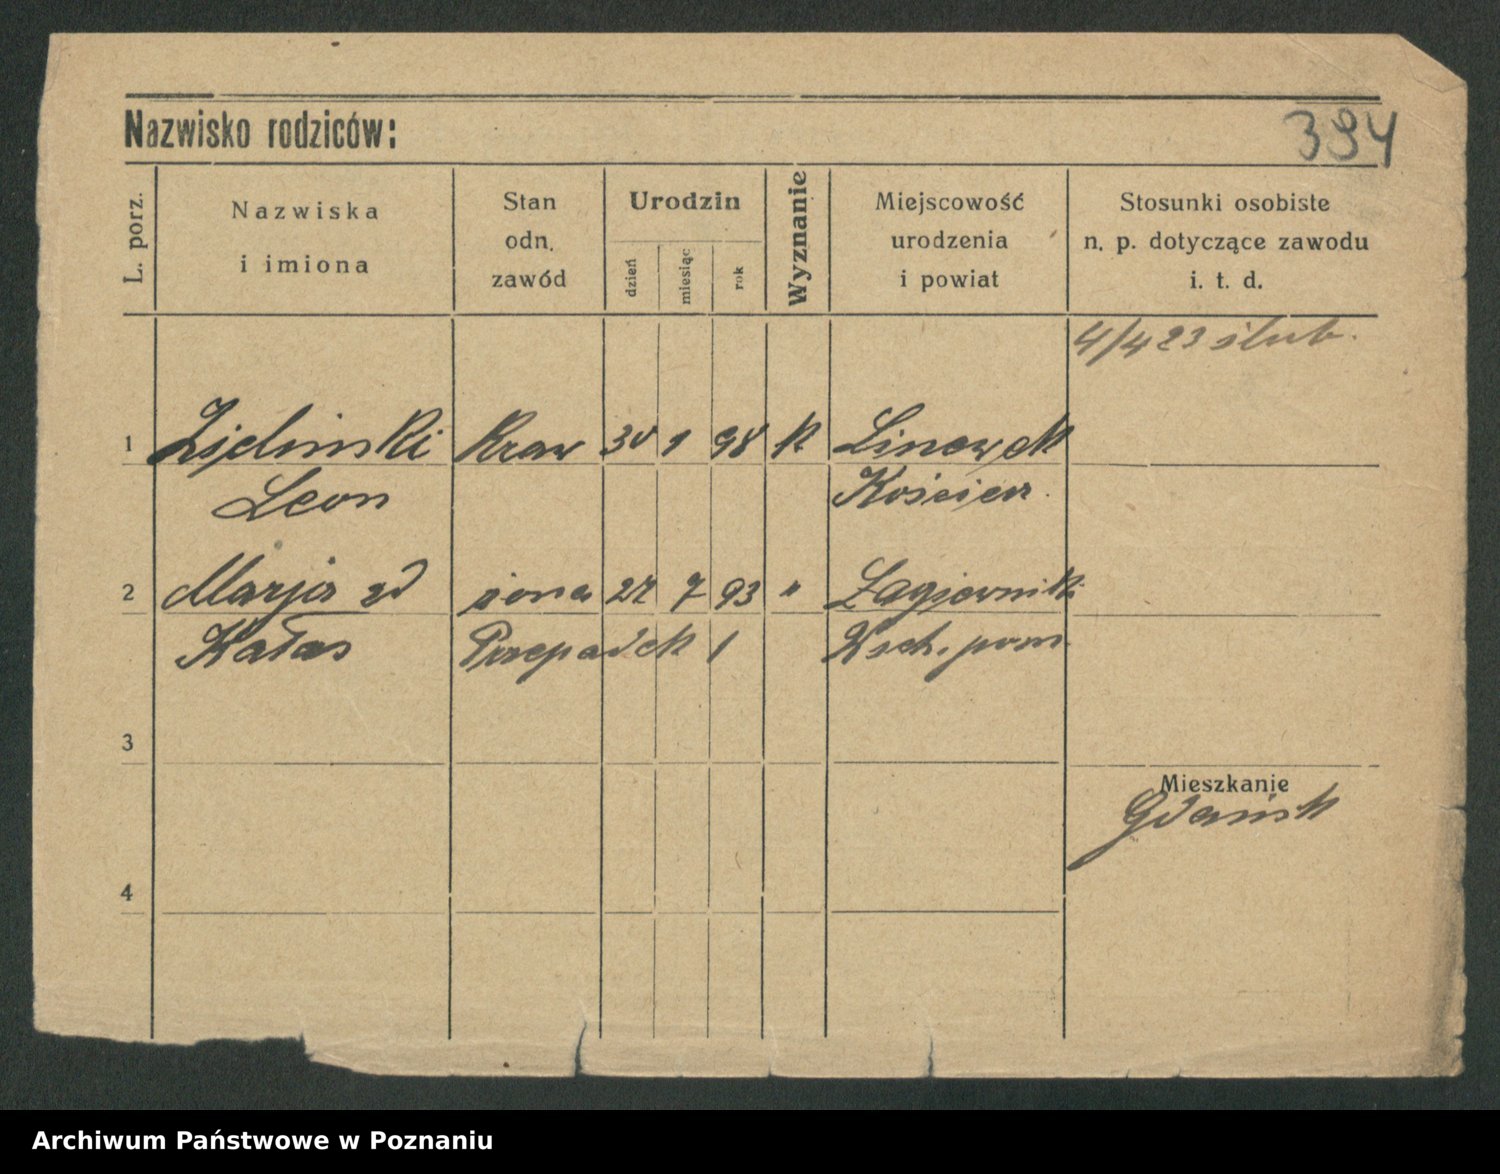 Nazwisko rodziców:
394
L. porz.
Nazwiska
i imiona
Stan
odn.
zawód
Urodzin
dzień
miesiąc
rok
Wyznanie
Miejscowość
urodzenia
i powiat
Stosunki osobiste
n. p. dotyczące zawodu
i. t. d.
4/4 23 ślub.
1 Zieliński kraw 30 1 98 k
Leon Kościer.
2 Marja zd żona 27 7 93 " Łagiewniki
Kałas Przepadek 1
3
Mieszkanie
Gdańsk
4
Archiwum Państwowe w Poznaniu